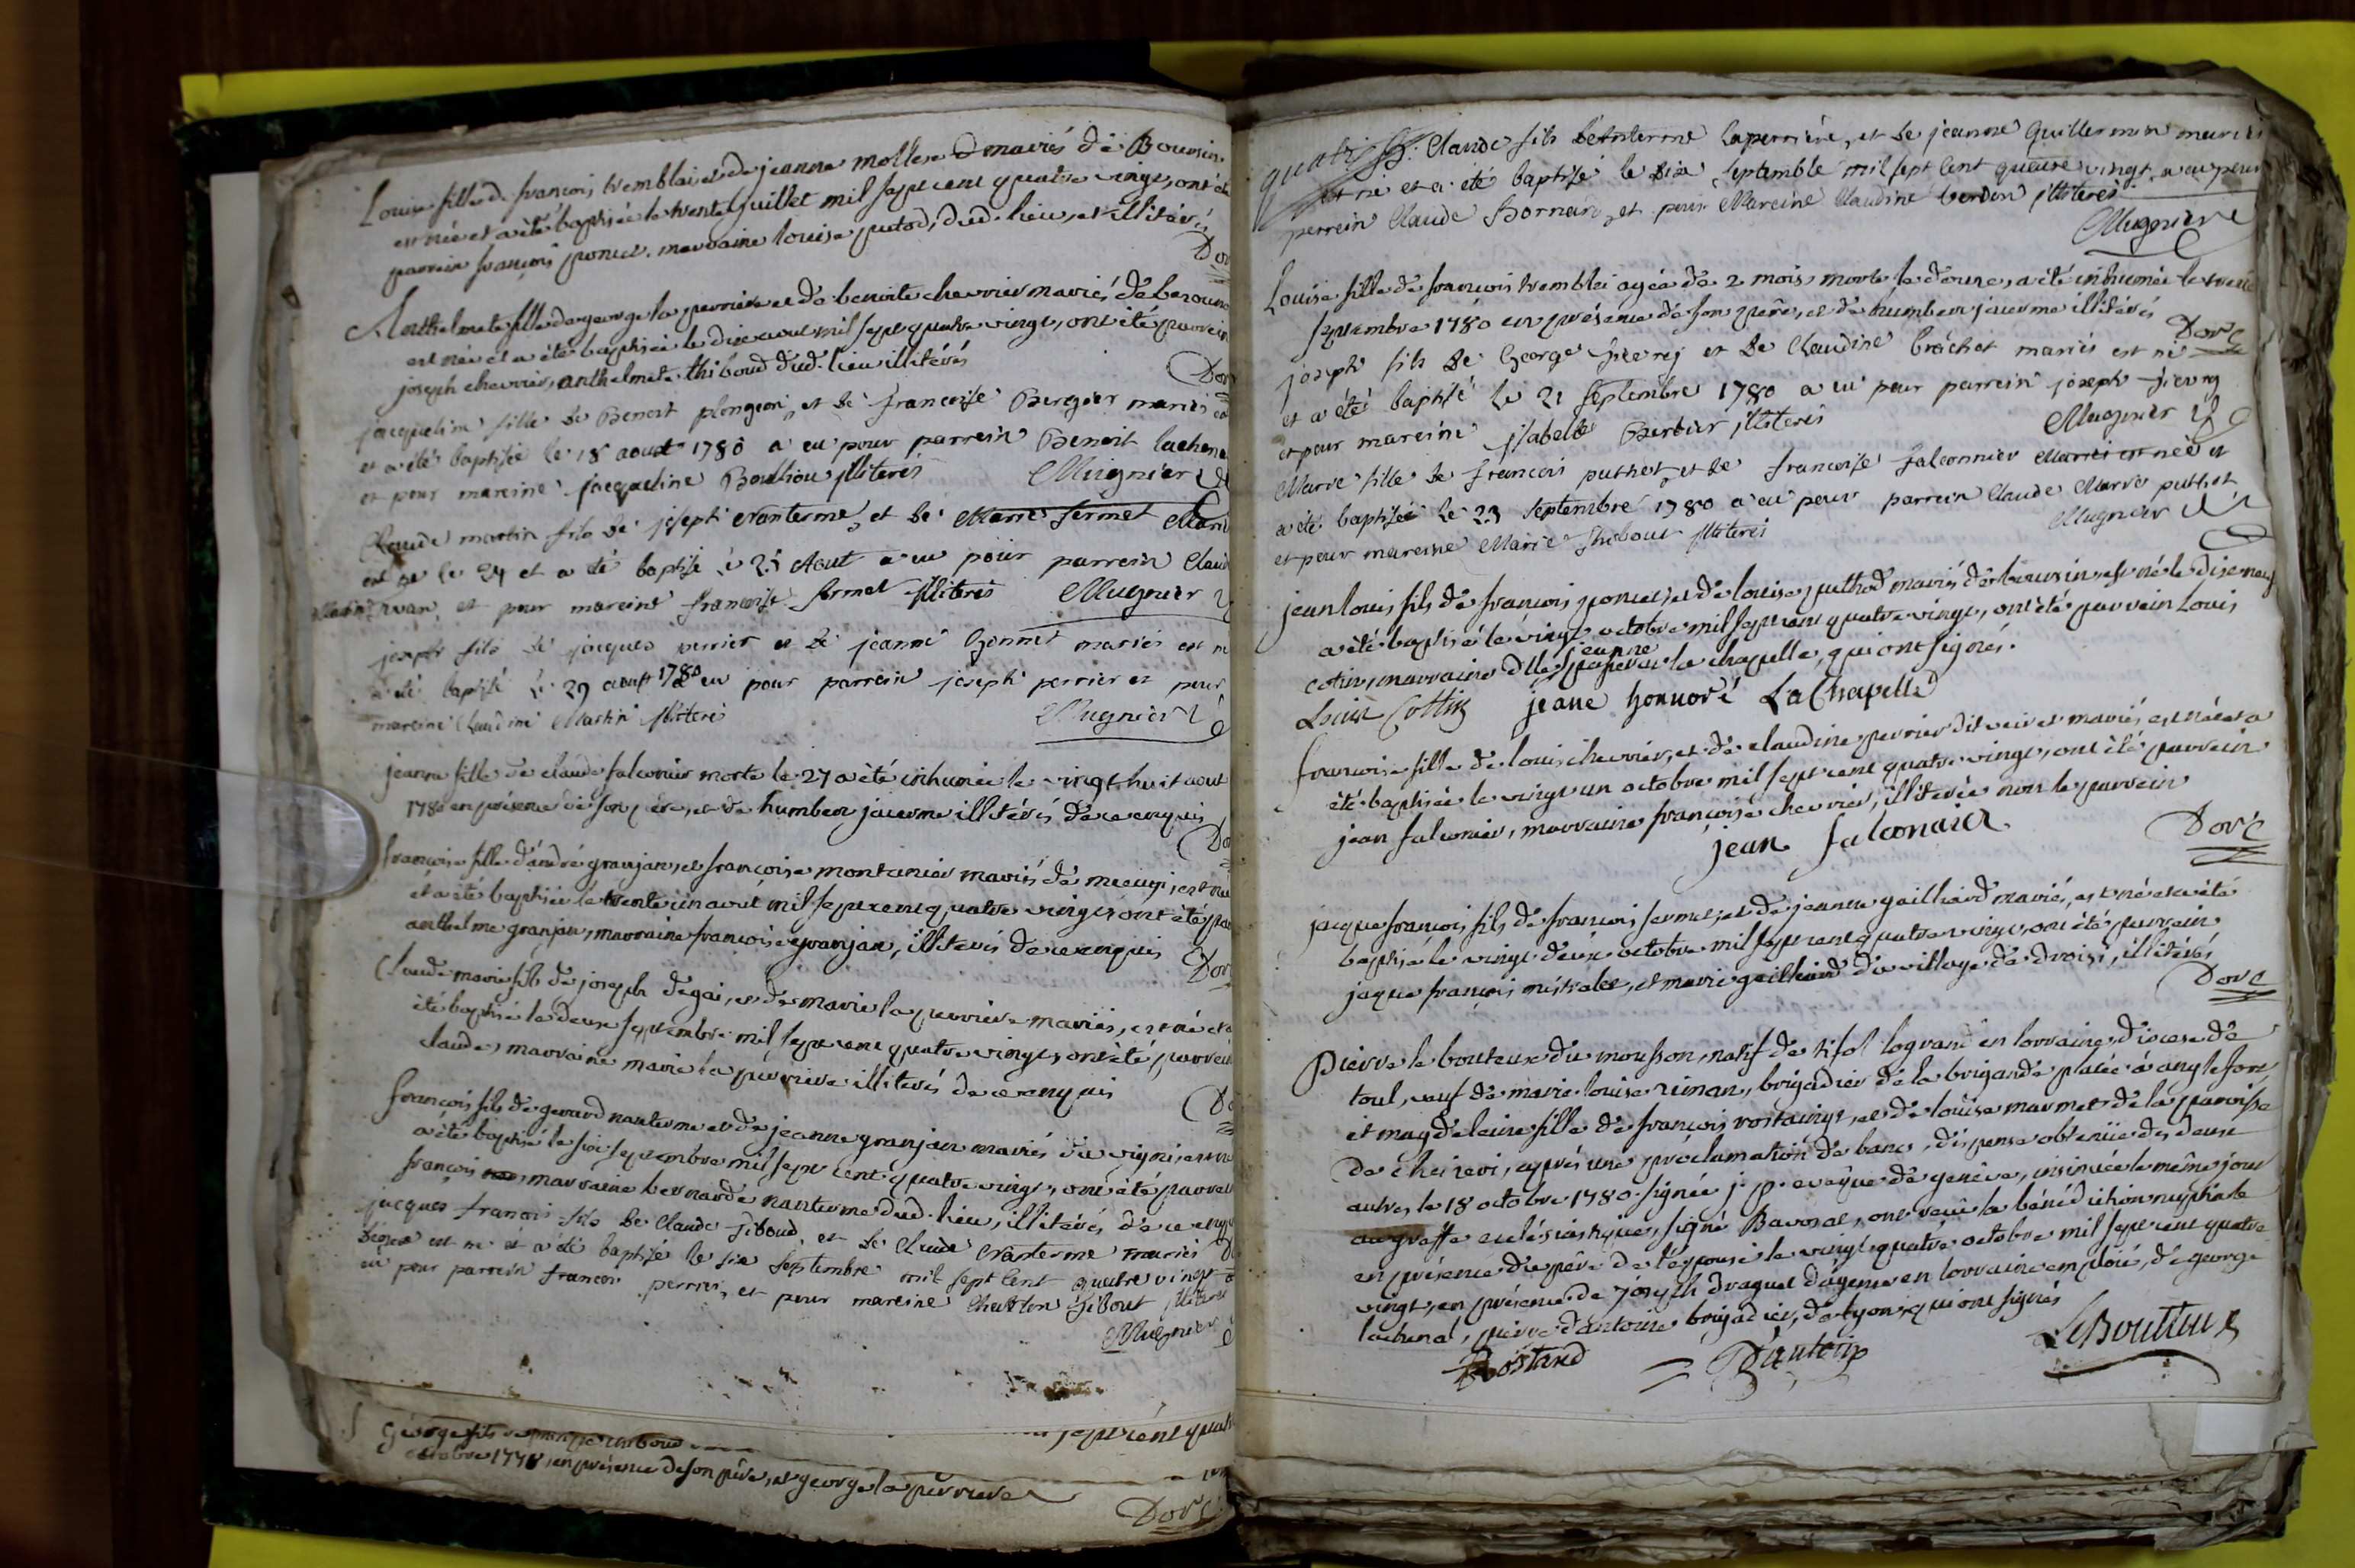 Louise fille de francois tremblai et de jeanne mollex mariés de Boursin
est née et a été baptisée le trente juillet mil sept cent quatre vingt, ont été
parrein francois poncet, marraine louise putod, dud. lieu, et illitérés
Anthelmete fille de george la perriere et de benoite chevrier mariés de
est née et a été baptisée le dix aout mil sept quatre vingt, ont été parrein
joseph chevrier, anthelmete thiboud dud. lieu illitérés
jacqueline fille de Benoit plongeon, et de francoise Bergier mariés est
et a été baptisée le 18 aoust 1780 a eu pour parrein Benoit lachena
et pour mareine jacqueline Bouthiou illiterés Mugnier
Claude martin fils de joseph Nanterme, et de Marie fermet Marié
est né le 24 et a été baptisé le 25 Aout a eu pour parrein Claud
et pour mareine francoise fermet illiterés Mugnier
joseph fils de jacques perrier et de jeanne honnet mariés est n
a été baptisé le 29 aoust 1780 a eu pour parrein joseph perrier et pour
mareine Claudine Martin illiteré Mugnier
jeanne fille de claude falconier morte le 27 a été inhumée le vingt huit aout
1780 en présence de son père, et de humbert jacerme illitérés de ce enquis
francoise fille d'andré granjan, et françoise montanier mariés de
et a été baptisée le trente un aout mil sept cent quatre vingt ont été par
anthelme granjan, marraine francoise granjan, illiterés de ce enquis
Claude marie fils de joseph degai, et de marie la perriere mariés, est né et a
été baptisé le deux septembre mil sept cent quatre vingt, ont été, parrein
claude, marraine marie la perriere illiterés de ce enquis
francois fils de gerard nanterme et de jeanne granjan mariés
a été baptisé le six septembre mil sept cent quatre vingt, ont été parrein
francois marraine bernarde nanterme dud. lieu, illitérés, de ce enquis
jacques francois fils de Claude Jiboud, et de Claude Nanterme mariés
est né et a été baptisé le six septembre mil sept cent quatre vingt
eu pour parrein francois perrier, et pour mareine Jibout illiterés
Mugnier
George fils
octobre 1778, en présence de son père, et george la perriere
Dorc
Claude fils de Anterme laperriere, et de jeanne Guillermin mariés
est né et a été baptisé le dix septembre mil sept cent quatre vingt a eu pour
perrein Claude Bornard, et pour Mareine Claudine verdon illiterés
Mugnier
Louise fille de francois tremblei agée de 2 mois morte le douze, a été inhumée le treize
septembre 1780 en présence de son père, et de humbert jacerme illitérés
Dorc
joseph fils de George et de Claudine brachet mariés est né
et a été baptisé le 21 septembre 1780 a eu pour parrein joseph
et pour mareine jsabelle Berbier illiterés Mugnier
Marie fille de francois puthet, et de francoise falconnier mariés est née et
a été baptisée le 23 septembre 1780 a eu pour parrein Claude Marie puthet
et pour mareine Marie thibout illiterés Mugnier
jean louis fils de francois poncet, et de louise puthod mariés de boursin, est né le dix neuf
a été baptisé le vingt octobre mil sept cent quatre vingt, ont été parrein Louis
cotin, marraine dlle jeanne la chapelle, qui ont signés.
Louis Cottin jeane honnoré LaChapelle
francoise fille de louis chevrier, et de claudine perrier dit mariés, est née et a
été baptisée le vingt un octobre mil sept cent quatre vingt, ont été parrein
jean falconier, marraine françoise chevrier, illiterée non le parrein
jean falconnier Dorc
jacque francois fils de francois fermet, et de jeanne gailliard mariés, est né et a été
baptisé le vingt deux octobre mil sept cent quatre vingt, ont été parrein
jaque françois mistralet, et marie gailliard du village de droisi, illitérés,
Dorc
pierre le bouteux du mousson, natif de tifol le grand en lorraine, diocese de
toul, veuf de marie louise runan, brigadier de la brigande placée à anglefort,
et magdeleine fille de françois rostaingt, et de louise marmet de la paroisse
de cheirevi, après une proclamation de banc, dispense obtenüe des deux
autres, le 18 octobre 1780. signée j. p. evêque de genève, insinuée le même jour
au greffe ecclésiastique, signé Bavoral, ont reçu la bénédiction nuptiale
en présence du père de l'épouse le vingt quatre octobre mil sept cent quatre
vingt, en présence de joseph draguet en lorraine emploié, de george
lachenal, pierre d'antoine brigadier, de lyon, qui ont signés
Rostand Dantoin LeBoutteux